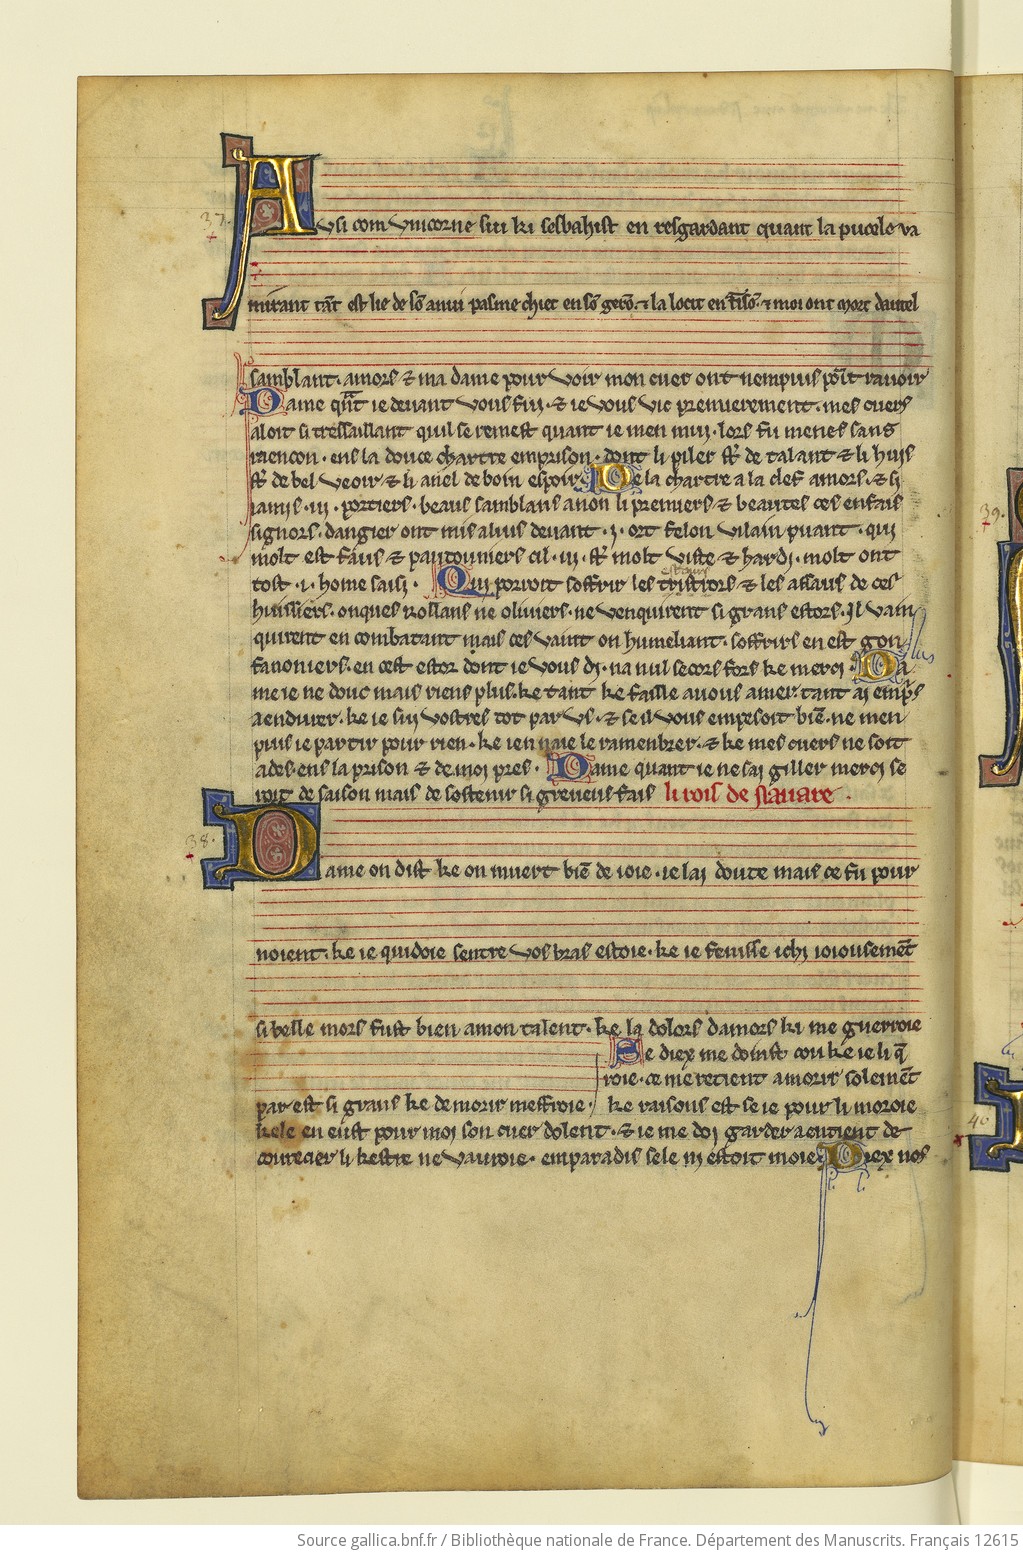 37.
Ausi com vnicorne sui ki sesbahist en resgardant quant la pucele va
mirant tāt est lie de sō anui pasmee chiet en sō gerō. ⁊ la locit en t̄isō. ⁊ moi ont mort dautel
samblant. amors & ma dame pour voir mon cuer ont nempuis poīt rauoir
Dame qāt ie deuant vous fui. & ie vous vic premierement. mes cuers
aloit si tressaillant quil se remest quant ie men mui. lors fu menes sans
raencon. ens la douce chartre emprison. dont li piler sʳt de talant & li huis
sʳt de bel veoir & li anel de boin espoir. De la chartre a la clef amors. & si
iamis .iii. portiers. biaus samblans a non li premiers & beautes ces en fais
signors. dangier ont mis aluis deuant .i. ort felon vilain puant. qui
molt est faus & pautouniers cil .iii. sʳt molt viste & hardi. molt ont
tost .i. home saisi. Qui porroit soffrir les tristrors & les assaus de ces
huissiers. onques rollans ne oliuiers. ne venquirent si grans estors. Jl vain
quirent en combatant mais ces vaint on humeliant. soffrirs en est gon
fanoniers. en cest estor dont ie vous di. na nul secors fors ke merci. Da
me ie ne douc mais riens plus. ke tant ke faille a uous amer. tant ai empͥs
a endurer. ke ie sui vostres tot par vs. & se il vous empesoit biē. ne men
puis ie partir pour rien. ke ien naie le ramenbrer. & ke mes cuers ne soit
ades. ens la prison & de moi pres. Dame quant ie ne sai giller merci se
roit de saison mais de sostenir si greueus fais li rois de nauare.
38.
Dame on dist ke on muert biē de ioie. ie lai doute mais ce fu pour
noient. ke ie quidoie sentre vos bras estoie. ke ie fenisse ichi ioiousemēt
si belle mors fust bien a mon talent. ke la dolors damors ki me guerroie
Se diex me doinst cou ke ie li q̄
roie. ce me retient a morir solemēt
par est si grans ke de morir meffroie. ke raisons est se ie pour li moroie
kele en eust pour moi son cuer dolent. & ie me doi garder a entient de
courecier li kestre ne vauroie. emparadis sele ni estoit moie. Diex nos
39.
40
Source gallica.bnf.fr / Bibliothèque nationale de France. Département des Manuscrits. Français 12615